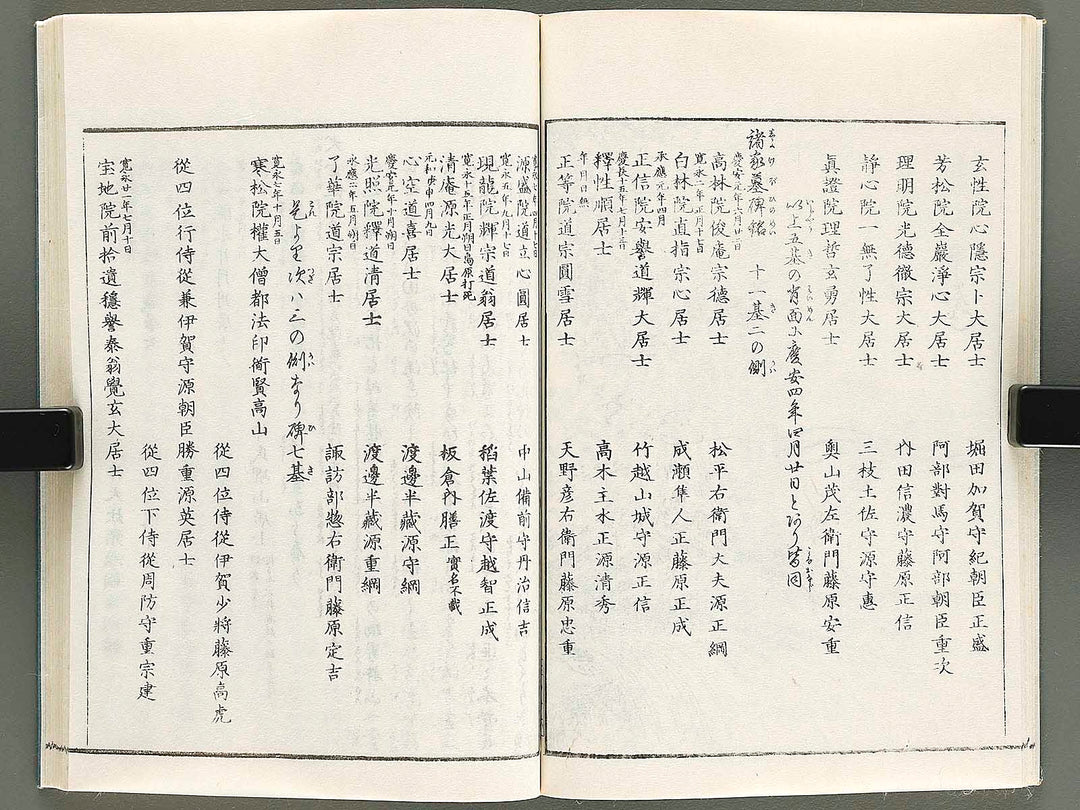 玄性院心隱宗卜大居士　堀田加賀守紀朝臣正盛
芳松院全巖淨心大居士　阿部對馬守阿部朝臣重次
理明院光德徹宗大居士　内田信濃守藤原正信
靜心院一無了性大居士　三枝土佐守源守惠
眞證院理哲玄勇居士　奥山茂左衛門藤原安重
以上五基の背面に慶安四年四月廿日とあり皆同
諸家墓碑銘　十一基二の側
慶安元年六月廿二日
高林院俊庵宗德居士　松平右衛門大夫源正綱
寛永二年正月十七日
白林院直指宗心居士　成瀬隼人正藤原正成
承應元年四月
正信院安譽道輝大居士　竹越山城守源正信
慶長十五年七月十三日
釋性順居士　高木主水正源清秀
年月日無
正等院道宗圓雪居士　天野彦右衛門藤原忠重
源盛院道立心圓居士　中山備前守丹治信吉
寛永五年九月十七日
現龍院輝宗道翁居士　稻葉佐渡守越智正成
寛永十五年正月朔日島原打死
清庵源光大居士　板倉内膳正實名不載
元和庚申四月九日
心空道喜居士　渡邊半藏源守綱
慶安元年十月朔日
光照院釋道清居士　渡邊半藏源重綱
承應二年五月朔日
了華院道宗居士　諏訪部惣右衛門藤原定吉
是より次ハ三の側なり碑七基
寛永七年十月五日
寒松院權大僧都法印衛賢高山
從四位侍從伊賀少將藤原高虎
從四位行侍從兼伊賀守源朝臣勝重源英居士
從四位下侍從周防守重宗建
寛永廿一年七月十日
宝地院前拾遺穩譽泰翁覺玄大居士